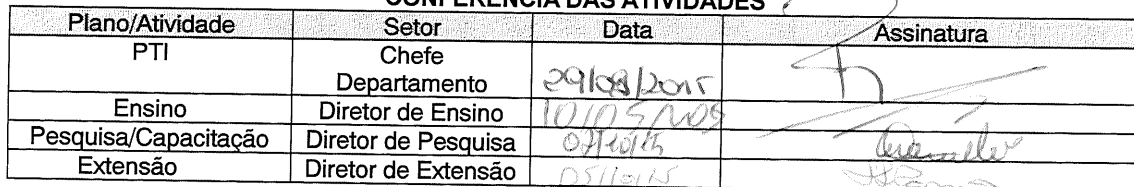 CONFERÊNCIA DAS ATIVIDADES
Plano/Atividade Setor Data Assinatura
PTI Chefe Departamento 29/08/2015
Ensino Diretor de Ensino
Pesquisa/Capacitação Diretor de Pesquisa 07/10/15
Extensão Diretor de Extensão 05/10/15